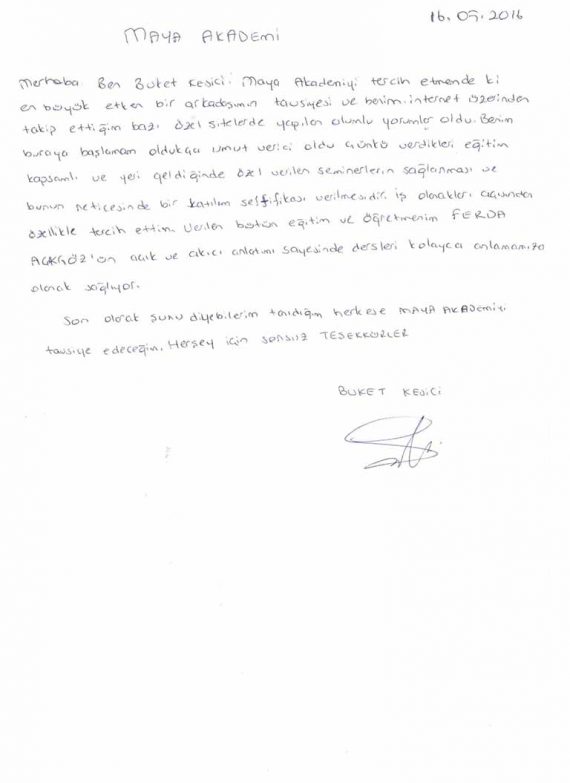 16.05.2016
MAYA AKADEMİ
Merhaba. Ben Buket Kesici. Maya Akademiyi tercih etmende ki
en büyük etken bir arkadaşımın tavsiyesi ve benim internet üzerinden
takip ettiğim bazı özel sitelerde yapılan olumlu yorumlar oldu. Benim
buraya başlamam oldukça umut verici oldu çünkü verdikleri eğitim
kapsamlı ve yeri geldiğinde özel verilen seminerlerin sağlanması ve
bunun neticesinde bir katılım setfifikası verilmesidir. iş olanakları açısından
özellikle tercih ettim. Verilen bütün eğitim ve öğretmenim FERDA
AÇIKGÖZ'ün açık ve akıcı anlatımı sayesinde dersleri kolayca anlamamıza
olanak sağlıyor.
Son olarak şunu diyebilirim tanıdığım herkese MAYA AKADEMİyi
tavsiye edeceğim. Herşey için sonsuz TEŞEKKÜRLER
BUKET KESİCİ